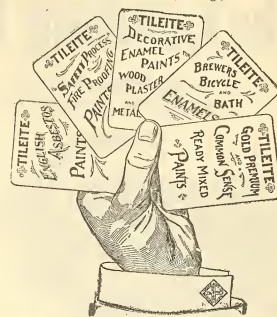 TILEITE
ENGLISH
ASBESTOS
PAINTS
TILEITE
SAFETY PROCESS
FIRE PROOFING
PAINTS
TILEITE
DECORATIVE
ENAMEL
PAINTS FOR
WOOD
PLASTER
AND
METAL
TILEITE
BREWERS
BICYCLE
AND
BATH
ENAMELS
TILEITE
GOLD PREMIUM
COMMON SENSE
READY MIXED
PAINTS